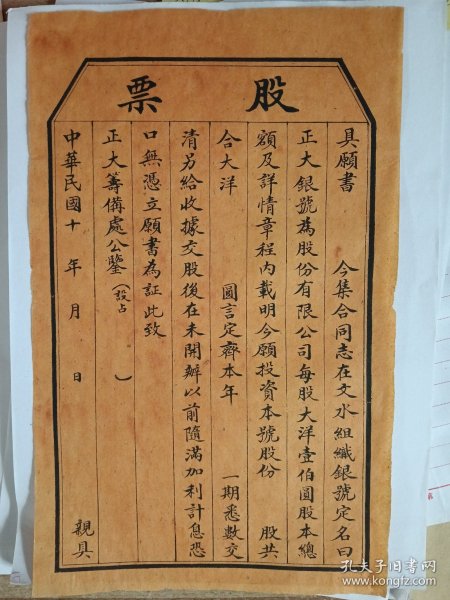 股票
具願書 今集合同志在文水組織銀號定名曰
正大銀號為股份有限公司每股大洋壹伯圓股本總
額及詳情章程內載明今願投資本號股份 股共
合大洋 圓言定齊本年 一期悉數交
清另給收據交股後在未開辦以前隨滿加利計息恐
口無憑立願書為証此致
正大籌備處公鑒（設占 ）
中華民國十 年 月 日 親具
孔夫子旧书网
www.kongfz.com